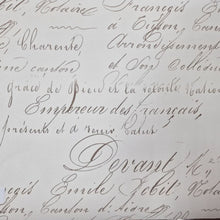 Robit, Notaire
François
à Tiffon, Can
Charente
Arrondissement
ême canton
et Son Collègue
grâce de Dieu et la volonté Natio
Empereur des français,
présents et à venir Salut
Devant, Me
nçois Emile Robit, Notai
on, Canton d'Aigre